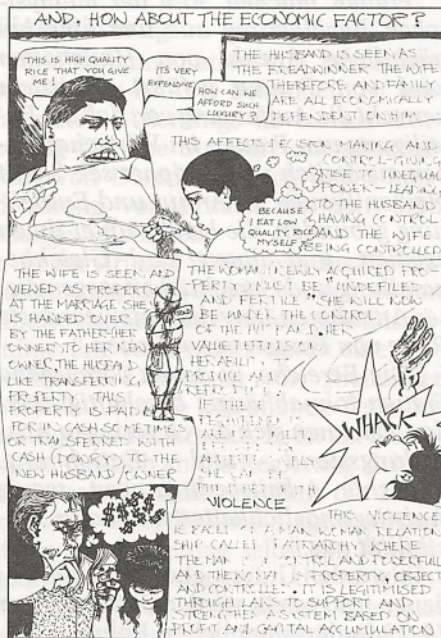 AND, HOW ABOUT THE ECONOMIC FACTOR?
THIS IS HIGH QUALITY
RICE THAT YOU GIVE
ME!
IT'S VERY
EXPENSIVE
HOW CAN WE
AFFORD SUCH
LUXURY?
THE HUSBAND IS SEEN AS
THE BREADWINNER THE WIFE
THEREFORE AND FAMILY
ARE ALL ECONOMICALLY
DEPENDENT ON HIM
THIS AFFECTS DECISION MAKING AND
CONTROL-GIVING
RISE TO UNEQUAL
POWER - LEADING
TO THE HUSBAND
HAVING CONTROL
AND THE WIFE
BEING CONTROLLED
BECAUSE
I EAT LOW
QUALITY RICE
MYSELF
THE WIFE IS SEEN AND
VIEWED AS PROPERTY
AT THE MARRIAGE SHE
IS HANDED OVER
BY THE FATHER (HER
OWNER) TO HER NEW
OWNER, THE HUSBAND
LIKE TRANSFERRING
PROPERTY. THIS
PROPERTY IS PAID
FOR IN CASH SOMETIMES
OR TRANSFERRED WITH
CASH (DOWRY) TO THE
NEW HUSBAND/OWNER
THE WOMAN (NEWLY ACQUIRED PRO-
PERTY) MUST BE "UNDEFILED
AND FERTILE" SHE WILL NOW
BE UNDER THE CONTROL
OF THE HUSBAND. HER
VALUE DEPENDS ON
HER ABILITY TO
PRODUCE AND
REPRODUCE.
IF THESE
REQUIREMENTS
ARE NOT MET,
SHE CAN BE
WITH
VIOLENCE
WHACK
THIS VIOLENCE
MAN WOMAN RELATION
SHIP CALLED PATRIARCHY WHERE
THE MAN IS CONTROL AND POWERFUL
AND THE WOMAN IS PROPERTY, OBJECT
AND CONTROLLED. IT IS LEGITIMISED
THROUGH LAWS TO SUPPORT AND
STRENGTHEN A SYSTEM BASED ON
PROFIT AND CAPITAL ACCUMULATION